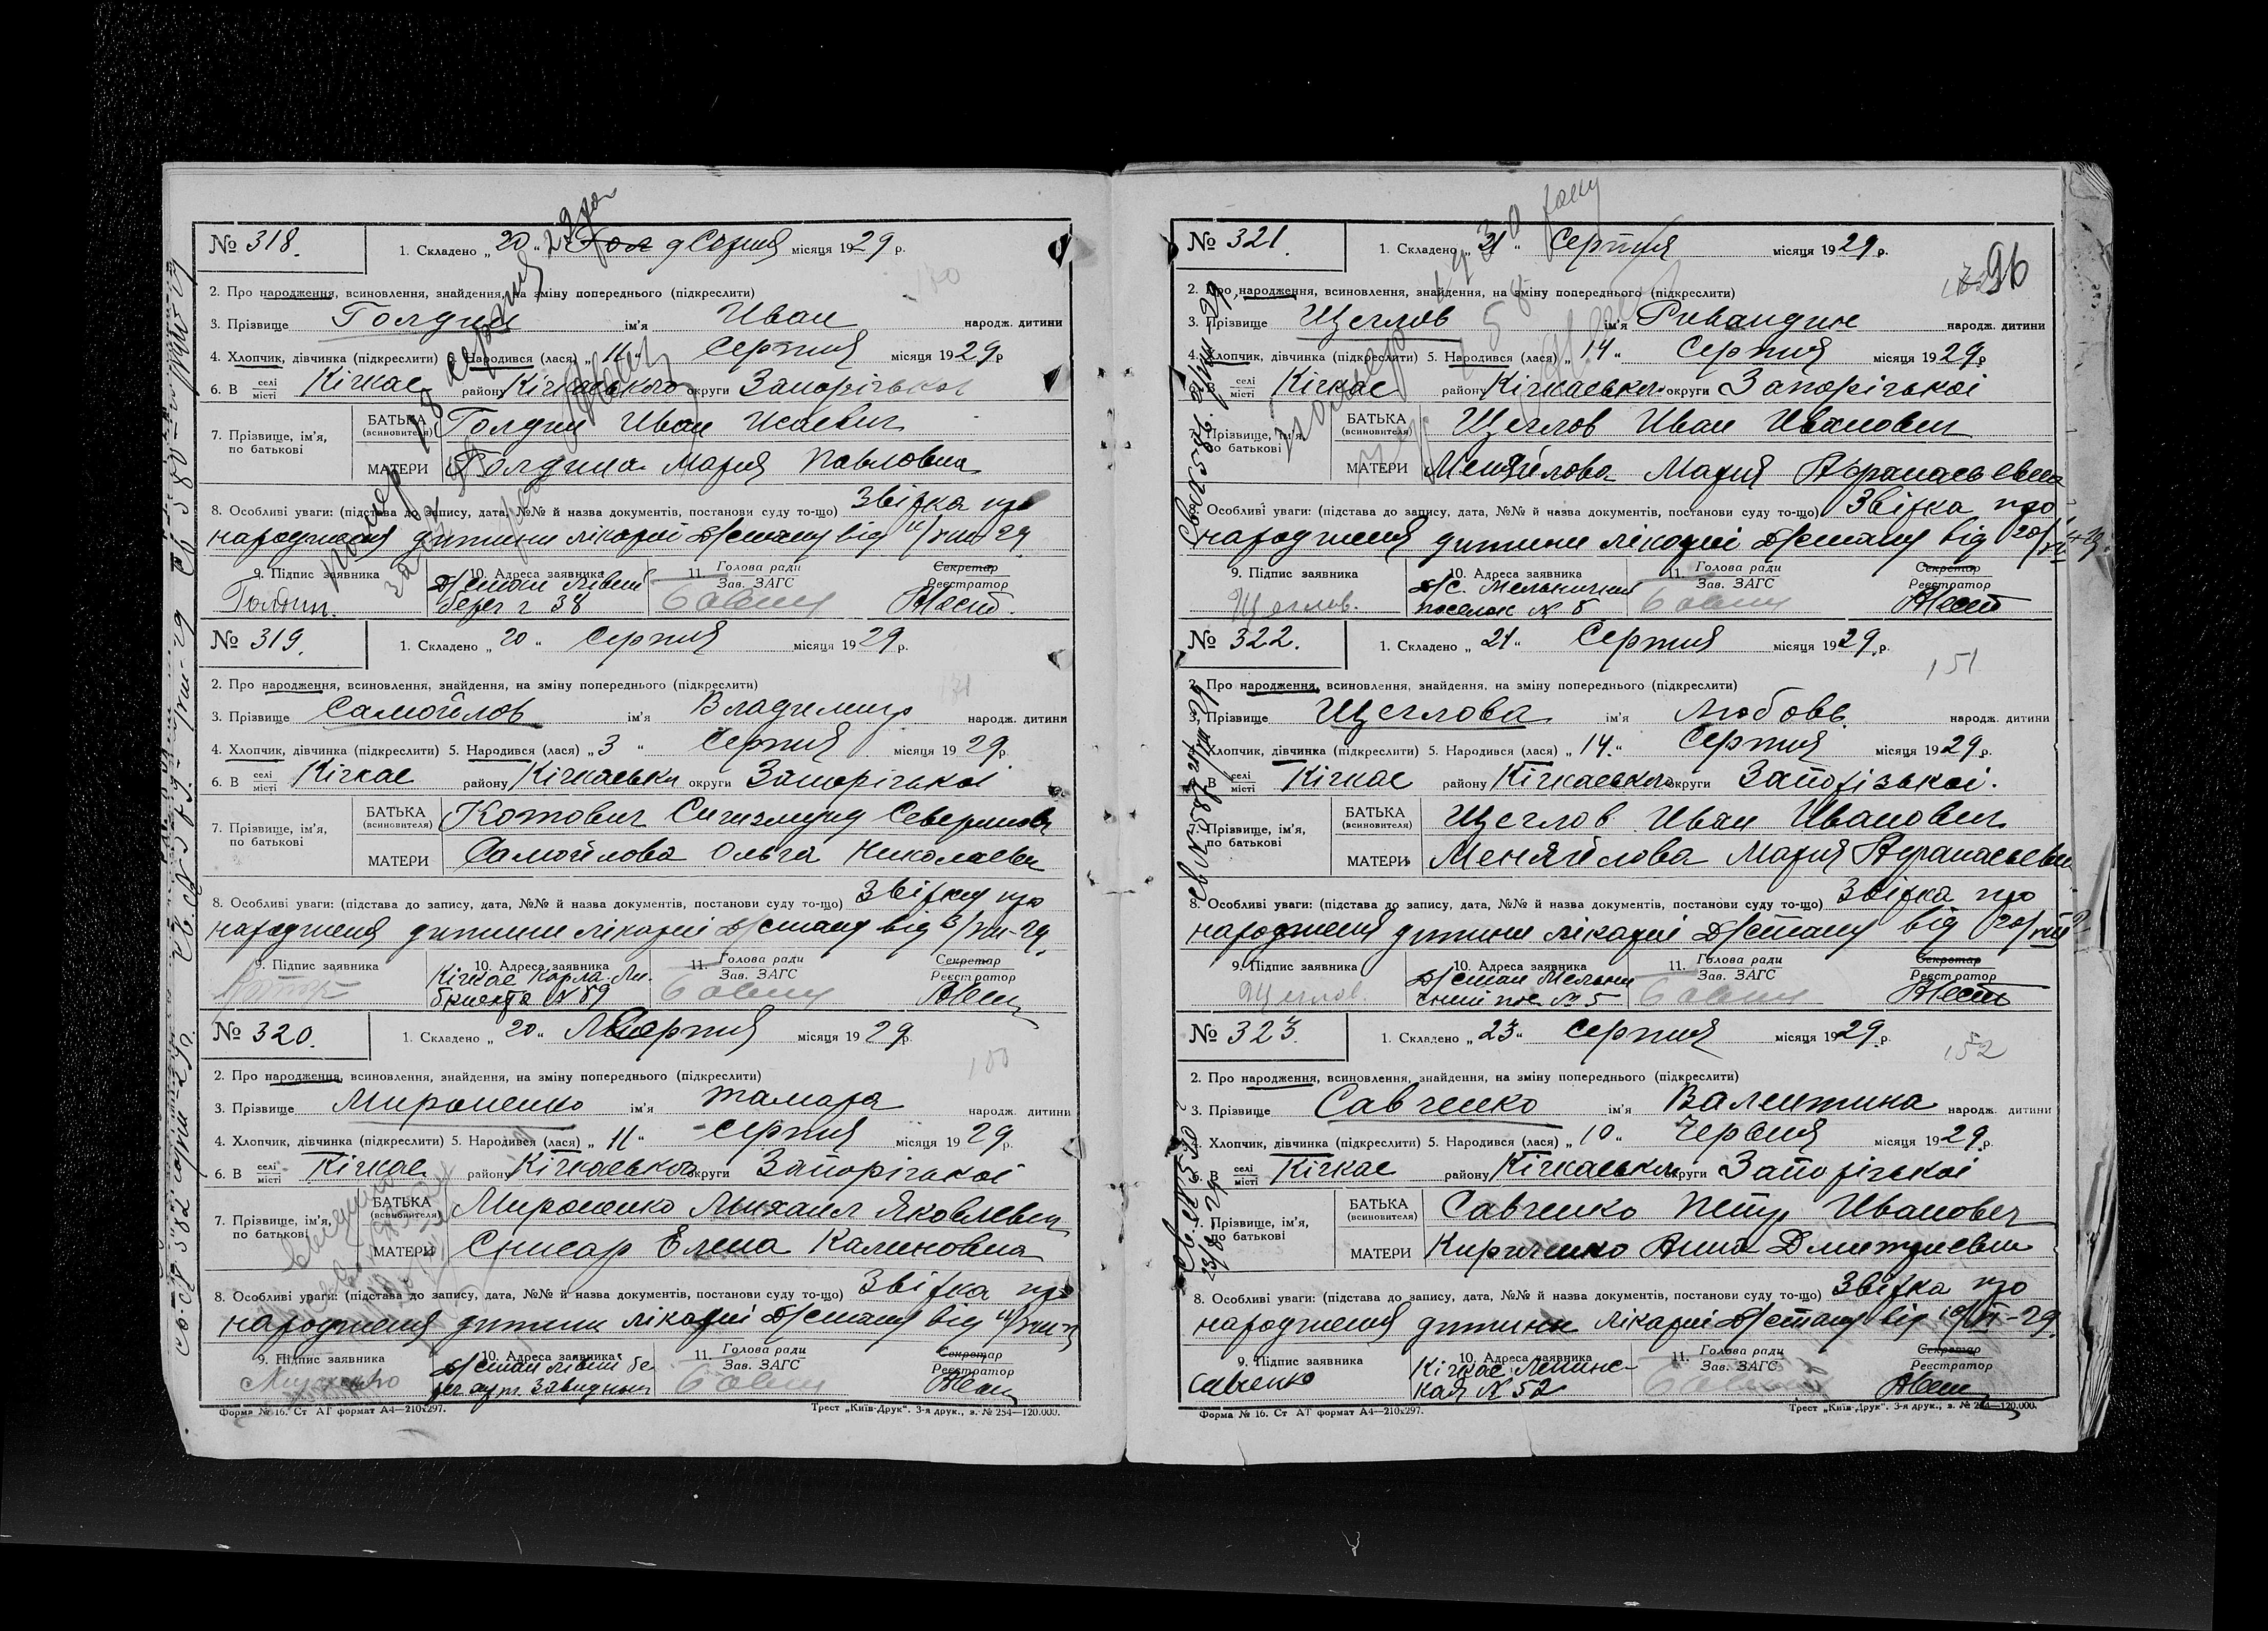 № 318. 1. Складено „20“ серпня місяця 1929 р.
2. Про народження, всиновлення, знайдення, на зміну попереднього (підкреслити)
3. Прізвище Голдин ім'я Иван народж. дитини
4. Хлопчик, дівчинка (підкреслити) 5. Народився (лася) „11“ Серпня місяця 1929 р
6. В селі місті Кічкас району Кічкаського округи Запорізької
7. Прізвище, ім'я, по батькові
БАТЬКА (всиновителя) Голдин Иван Исаевич
МАТЕРИ Голдина Мария Павловна
8. Особливі уваги: (підстава до запису, дата, №№ й назва документів, постанови суду то-що) Звістка про
народження дитини лікарні Д/стану від 11/VIII-29
9. Підпис заявника 10. Адреса заявника 11. Голова ради Секретар
Зав. ЗАГС Реєстратор
Голдин. Д/стан лівий
берег 38
№ 319. 1. Складено „20“ Серпня місяця 1929 р.
2. Про народження, всиновлення, знайдення, на зміну попереднього (підкреслити)
3. Прізвище Самойлов ім'я Владимир народж. дитини
4. Хлопчик, дівчинка (підкреслити) 5. Народився (лася) „3“ Серпня місяця 1929 р.
6. В селі місті Кічкас району Кічкаськ округи Запорізької
7. Прізвище, ім'я, по батькові
БАТЬКА (всиновителя) Котович Сигизмунд Северинов
МАТЕРИ Самойлова Ольга Николаевн
8. Особливі уваги: (підстава до запису, дата, №№ й назва документів, постанови суду то-що) Звістка про
народження дитини лікарні Д/стану від 3/VIII-29.
9. Підпис заявника 10. Адреса заявника 11. Голова ради Секретар
Зав. ЗАГС Реєстратор
Кічкас Карла Ли-
бкнехта № 89
№ 320. 1. Складено „20“ Серпня місяця 1929 р.
2. Про народження, всиновлення, знайдення, на зміну попереднього (підкреслити)
3. Прізвище Мироненко ім'я Тамара народж. дитини
4. Хлопчик, дівчинка (підкреслити) 5. Народився (лася) „11“ Серпня місяця 1929 р.
6. В селі місті Кічкас району Кічкаського округи Запорізької
7. Прізвище, ім'я, по батькові
БАТЬКА (всиновителя) Мироненко Михаил Яковлевич
МАТЕРИ Снисар Елена Калиновна
8. Особливі уваги: (підстава до запису, дата, №№ й назва документів, постанови суду то-що) Звістка про
народження дитини лікарні Д/стану від 11/VIII-29
9. Підпис заявника 10. Адреса заявника 11. Голова ради Секретар
Зав. ЗАГС Реєстратор
Мироненко Д/стан лівий бе
Форма № 16. Ст АТ формат А4—210х297. Трест „Київ-Друк“. 3-я друк., з. № 254—120.000.
96
№ 321. 1. Складено „21“ Серпня місяця 1929 р.
2. Про народження, всиновлення, знайдення, на зміну попереднього (підкреслити)
3. Прізвище Щеглов ім'я народж. дитини
4. Хлопчик, дівчинка (підкреслити) 5. Народився (лася) „14“ Серпня місяця 1929 р
6. В селі місті Кічкас району Кічкаськ округи Запорізької
7. Прізвище, ім'я, по батькові
БАТЬКА (всиновителя) Щеглов Иван Иванович
МАТЕРИ Меняйлова Мария Афанасьевна
8. Особливі уваги: (підстава до запису, дата, №№ й назва документів, постанови суду то-що) Звістка про
народження дитини лікарні Д/стану від 20/VIII-29.
9. Підпис заявника 10. Адреса заявника 11. Голова ради Секретар
Зав. ЗАГС Реєстратор
Щеглов.
поселок № 8
№ 322. 1. Складено „21“ Серпня місяця 1929 р.
151
2. Про народження, всиновлення, знайдення, на зміну попереднього (підкреслити)
3. Прізвище Щеглова ім'я Любовь. народж. дитини
4. Хлопчик, дівчинка (підкреслити) 5. Народився (лася) „14.“ Серпня місяця 1929 р.
6. В селі місті Кічкас району Кічкаського округи Запорізької.
7. Прізвище, ім'я, по батькові
БАТЬКА (всиновителя) Щеглов Иван Иванович
МАТЕРИ Меняйлова Мария Афанасьевн
8. Особливі уваги: (підстава до запису, дата, №№ й назва документів, постанови суду то-що) Звістка про
народження дитини лікарні Д/стану від 20/VIII
9. Підпис заявника 10. Адреса заявника 11. Голова ради Секретар
Зав. ЗАГС Реєстратор
Щеглов.
№ 5
№ 323. 1. Складено „23“ Серпня місяця 1929 р.
152
2. Про народження, всиновлення, знайдення, на зміну попереднього (підкреслити)
3. Прізвище Савченко ім'я Валентина народж. дитини
4. Хлопчик, дівчинка (підкреслити) 5. Народився (лася) „10“ Червня місяця 1929 р.
6. В селі місті Кічкас району Кічкаськ округи Запорізької
7. Прізвище, ім'я, по батькові
БАТЬКА (всиновителя) Савченко Петр Иванович
МАТЕРИ Кириченко Анна Дмитриевн
8. Особливі уваги: (підстава до запису, дата, №№ й назва документів, постанови суду то-що) Звістка про
народження дитини лікарні Д/стану від 10/VI-29.
9. Підпис заявника 10. Адреса заявника 11. Голова ради Секретар
Зав. ЗАГС Реєстратор
Савченко Кічкас Ленинс-
кая № 52
Форма № 16. Ст АТ формат А4—210х297. Трест „Київ-Друк“. 3-я друк., з. № 254—120.000.